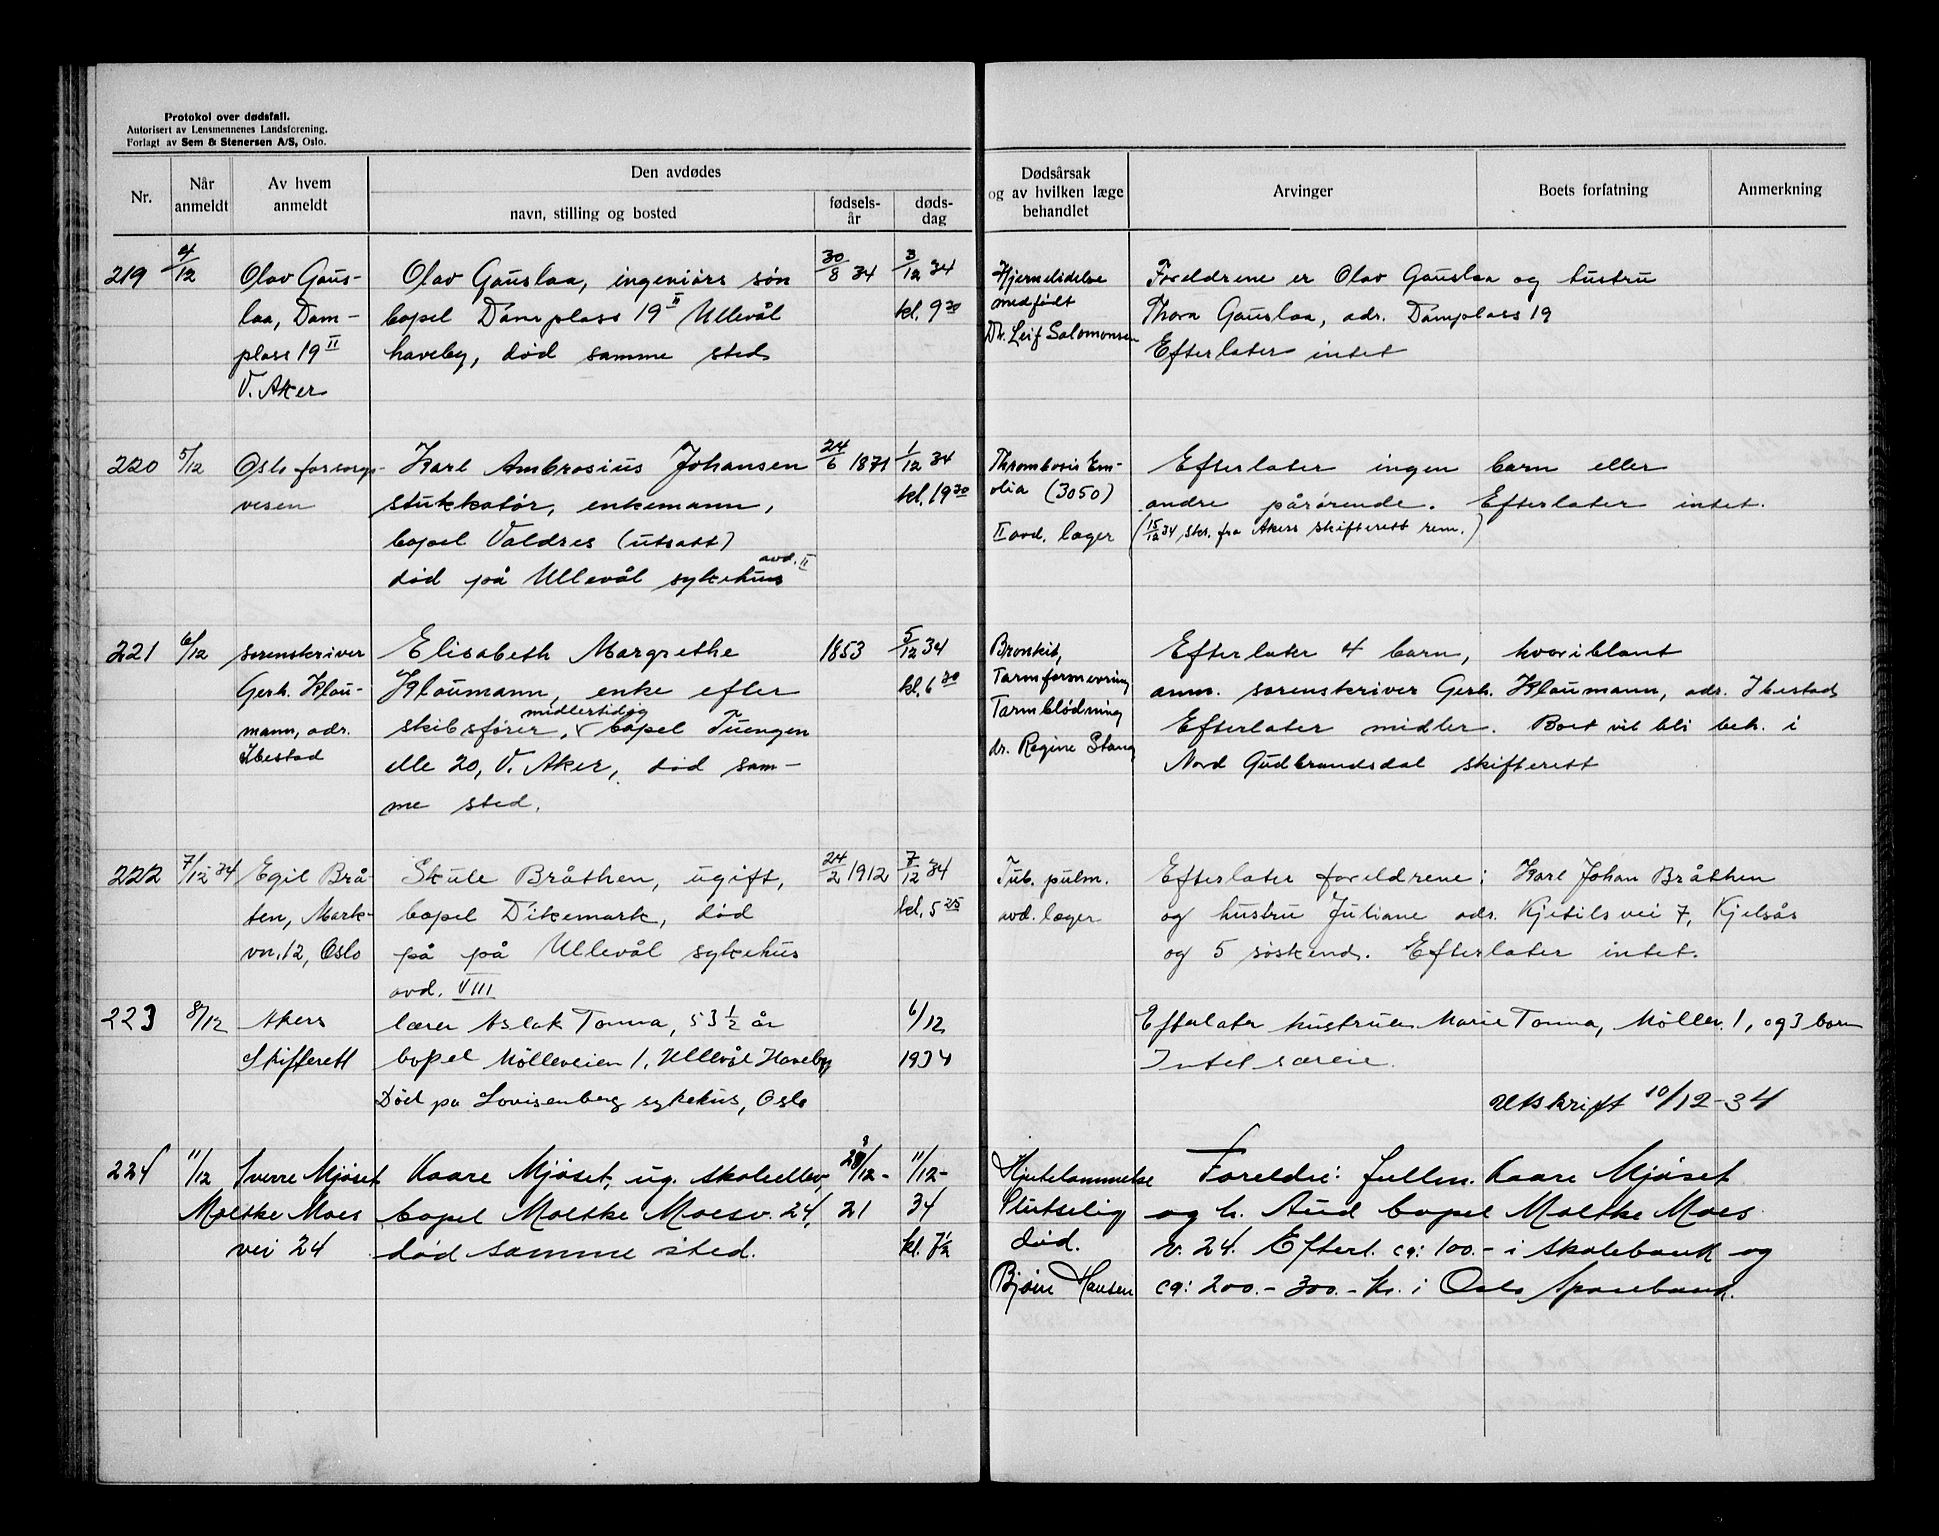 Protokol over dødsfall.
Autorisert av Lensmennenes Landsforening.
Forlagt av Sem & Stenersen A/S, Oslo.
Nr.
Når anmeldt
Av hvem anmeldt
Den avdødes
navn, stilling og bosted
fødselsår
dødsdag
Dødsårsak og av hvilken læge behandlet
Arvinger
Boets forfatning
Anmerkning
219
4/12
Olav Gaus-
laa, Dam-
plass 19 II
V. Aker
Olav Gauslaa, ingeniørs søn
bopel Damplass 19 II Ullevål
haveby, død samme sted
30/8 34
3/12 34
kl. 9 30
Hjernelidelse
medfødt
Dr. Leif Salomonsen
Foreldrene er Olav Gauslaa og hustru
Thora Gauslaa, adr. Damplass 19
Efterlater intet
220
5/12
Oslo forsorgs-
vesen
Karl Ambrosius Johansen
stukkatør, enkemann,
bopel Valdres (utsatt)
død på Ullevål sykehus avd. II
24/6 1871
1/12 34
kl. 19 30
Thrombosis Em-
olia (3050)
II avd. læger
Efterlater ingen barn eller
andre pårørende. Efterlater intet.
(15/12 34, skr. fra Akers skifterett rem.)
221
6/12
sorenskriver
Gerh. Klau-
mann, adr.
Ibestad
Elisabeth Margrethe
Klaumann, enke efter
skibsfører, midlertidig bopel Tuengen
alle 20, V. Aker, død sam-
me sted.
1853
5/12 34
kl. 6 30
Bronkit,
Tarmformevring
Tarmblødning
dr. Regine Stang
Efterlater 4 barn, hvoriblant
ann. sorenskriver Gerh. Klaumann, adr. Ibestad
Efterlater midler. Boet vil bli beh. i
Nord Gudbrandsdal skifterett
222
7/12 34
Egil Brå-
ten, Mark-
vn. 12, Oslo
Skule Bråthen, ugift,
bopel Dikemark, død
på på Ullevål sykehus
avd. VIII
24/2 1912
7/12 34
kl. 5 25
Tub. pulm.
avd. læger
Efterlater foreldrene: Karl Johan Bråthen
og hustru Juliane adr. Kjetils vei 7, Kjelsås
og 5 søskend. Efterlater intet.
223
8/12
Akers
Skifterett
lærer Aslak Tonna, 53 1/2 år
bopel Mølleveien 1, Ullevål Haveby
Død på Lovisenberg sykehus, Oslo
6/12
1934
Efterlater hustruen Marie Tonna, Møllev. 1, og 3 barn
Intet særeie.
Utskrift 10/12-34
224
11/12
Sverre Mjøset
Moltke Moes
vei 24
Kaare Mjøset, ug. skoleelev,
bopel Moltke Moesv. 24,
død samme sted.
/12-
21
11/12-
34
kl. 7 1/2
Hjertelammelse
Plutselig
død.
Bjørn Hansen
Foreldre: fullm. Kaare Mjøset
og h. Aud bopel Moltke Moes
v. 24. Efterl. ca: 100.- i skolebank og
ca: 200.- 300.- kr. i Oslo Sparebank.